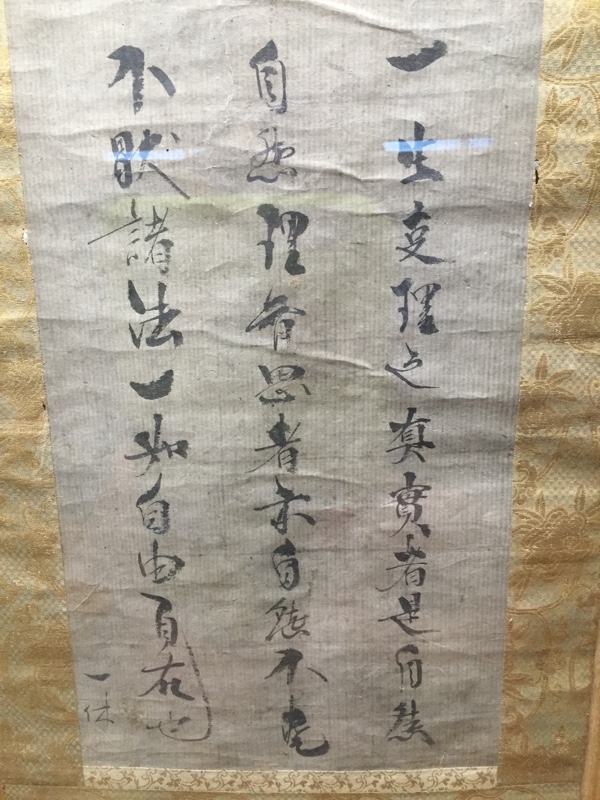 一生文理之真實者是自然
自然理者思者亦自然不
不然諸法一如自由自在也
一休